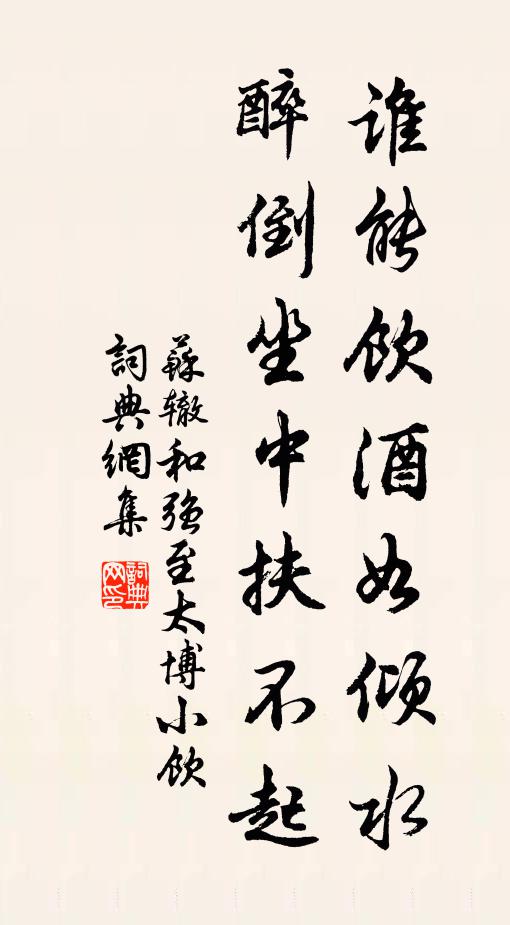 誰能飲酒如傾水
醉倒坐中扶不起
蘇轍和強至太博小飲
詞典網集
詞典网印